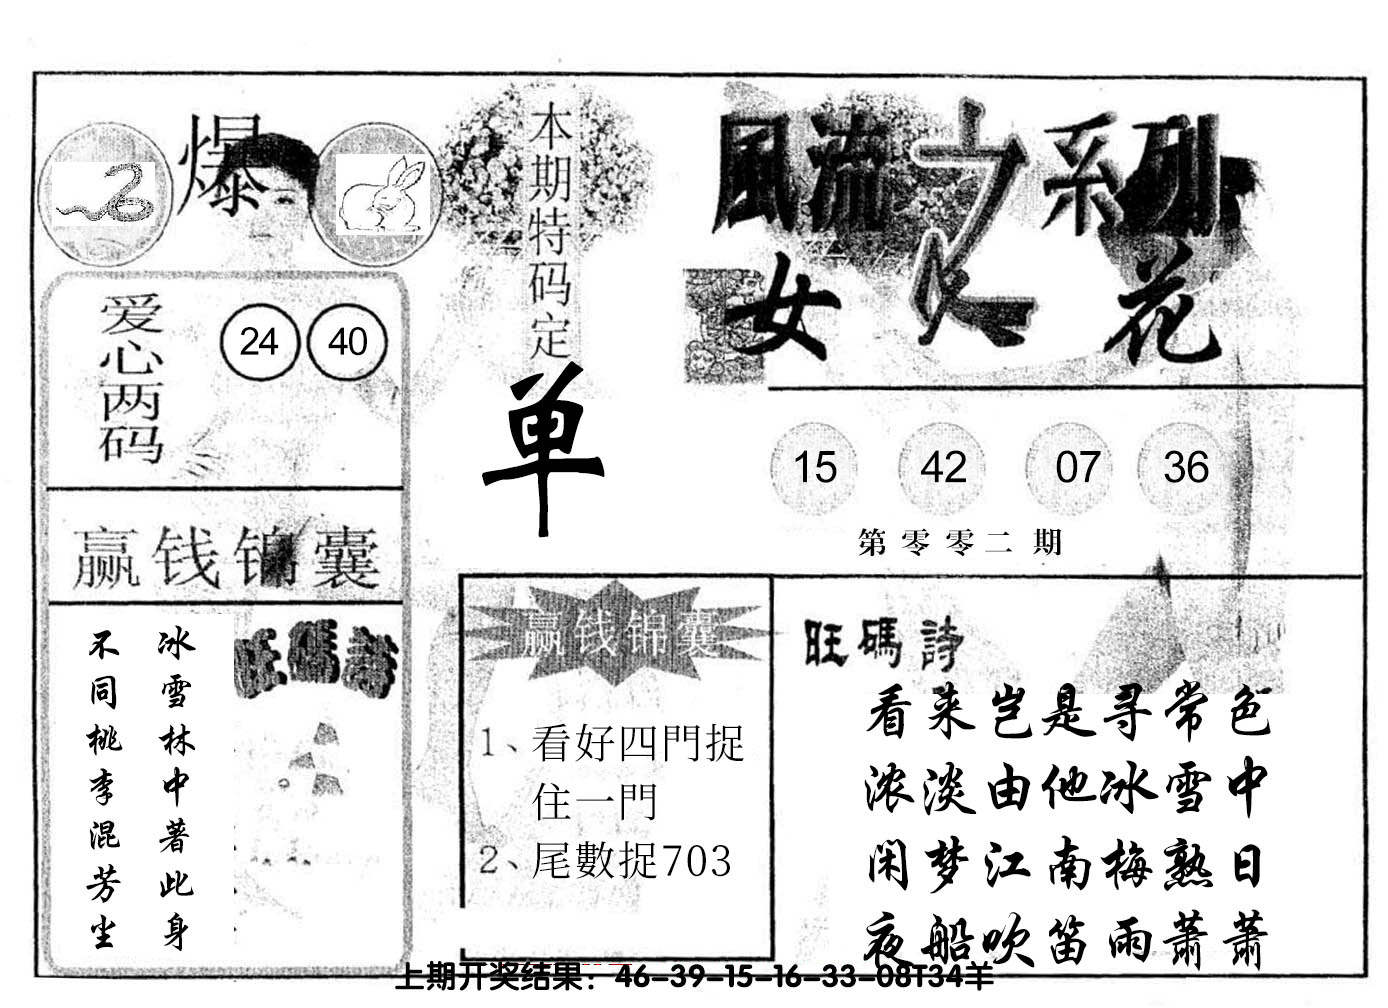 爆
本期特码定
单
風流之系列
女人花
爱心两码
24 40
赢钱锦囊
冰雪林中著此身
不同桃李混芳尘
旺碼詩
15 42 07 36
第零零二期
赢钱锦囊
1、看好四門捉
住一門
2、尾數捉703
旺碼詩
看来岂是寻常色
浓淡由他冰雪中
闲梦江南梅熟日
夜船吹笛雨萧萧
上期开奖结果：46-39-15-16-33-08T34羊